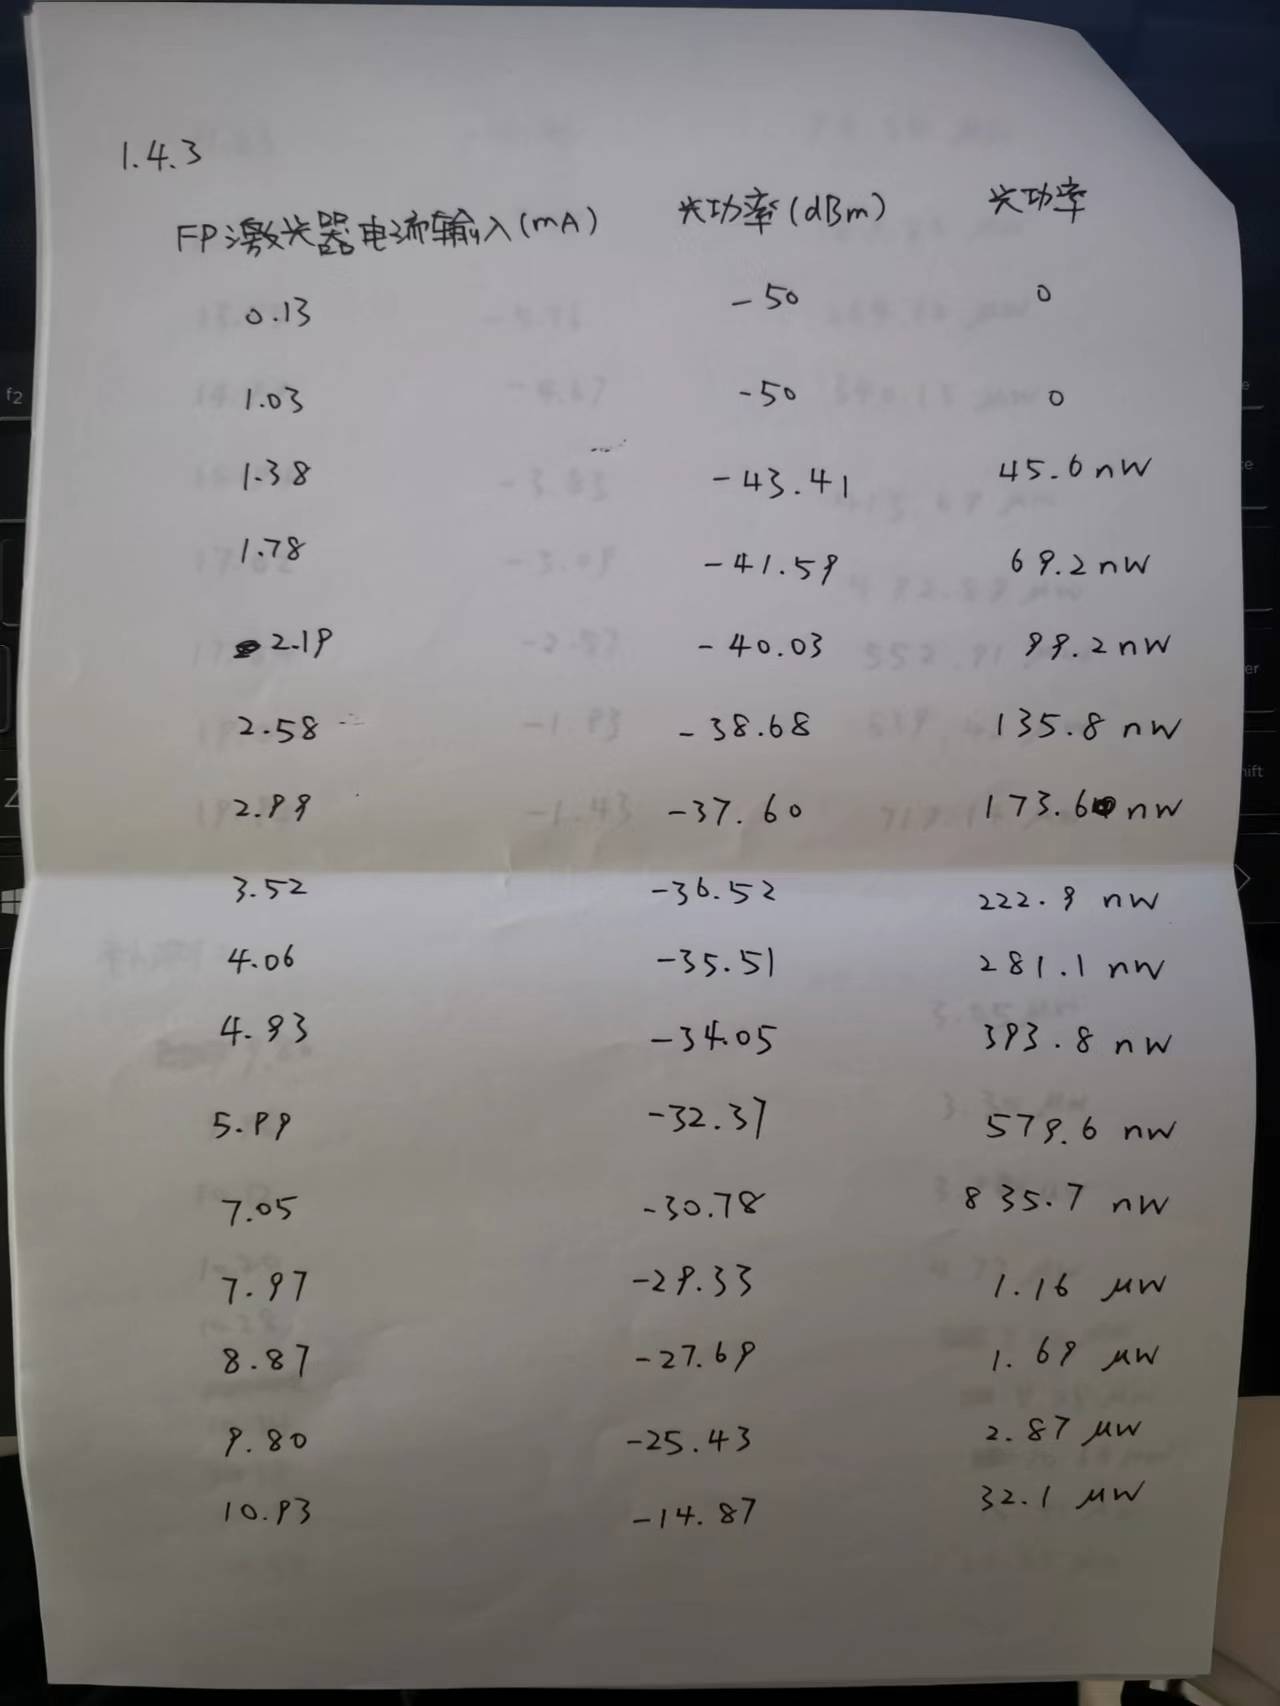 1.4.3
FP激光器电流输入(mA) 光功率(dBm) 光功率
0.13 -50 0
1.03 -50 0
1.38 -43.41 45.6nW
1.78 -41.59 69.2nW
2.19 -40.03 99.2nW
2.58 -38.68 135.8nW
2.99 -37.60 173.6nW
3.52 -36.52 222.9nW
4.06 -35.51 281.1nW
4.93 -34.05 393.8nW
5.99 -32.37 579.6nW
7.05 -30.78 835.7nW
7.97 -29.33 1.16μW
8.87 -27.69 1.69μW
9.80 -25.43 2.87μW
10.93 -14.87 32.1μW
f2